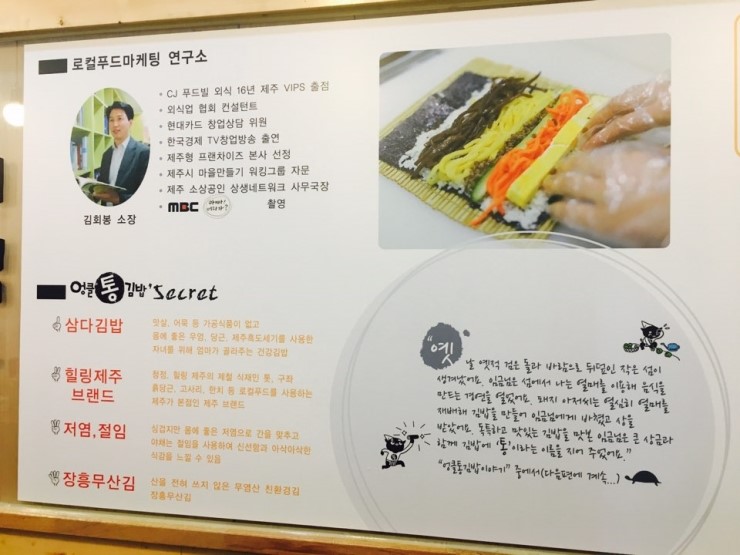 로컬푸드마케팅 연구소
CJ 푸드빌 외식 16년 제주 VIPS 출점
외식업 협회 컨설턴트
현대카드 창업상담 위원
한국경제 TV창업방송 출연
제주형 프랜차이즈 본사 선정
제주시 마을만들기 워킹그룹 자문
제주 소상공인 상생네트워크 사무국장
MBC 촬영
김회봉 소장
엉클통김밥's Secret
삼다김밥
맛살, 어묵 등 가공식품이 없고
몸에 좋은 우엉, 당근, 제주흑도세기를 사용한
자녀를 위해 엄마가 골라주는 건강김밥
힐링제주
브랜드
청정, 힐링 제주의 제철 식재인 톳, 구좌
흙당근, 고사리, 한치 등 로컬푸드를 사용하는
제주가 본점인 제주 브랜드
저염,절임
싱겁지만 몸에 좋은 저염으로 간을 맞추고
야채는 절임을 사용하여 신선함과 아삭아삭한
식감을 느낄 수 있음
장흥무산김
산을 전혀 쓰지 않은 무염산 친환경김
장흥무산김
“옛
날 옛적 검은 돌과 바람으로 뒤덮인 작은 섬이
생겨났어요. 임금님은 섬에서 나는 열매를 이용해 음식을
만드는 경연을 열었어요. 돼지 아저씨는 열심히 열매를
재배해 김밥을 만들어 임금님에게 바쳤고 상을
받았어요. 독특하고 맛있는 김밥을 맛본 임금님은 큰 상금과
함께 김밥에 '통'이라는 이름을 지어 주었어요."
"엉클통김밥이야기" 중에서(다음편에 계속...)